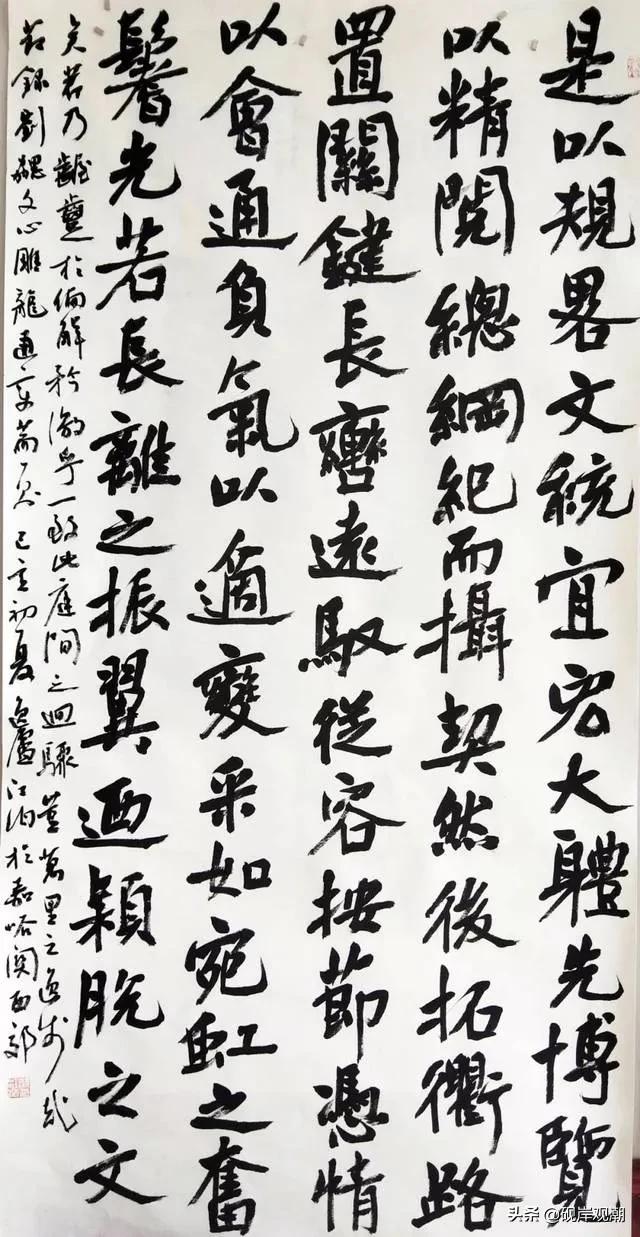 是以規略文統宜宏大體先博覽
以精閱總綱紀而攝契然後拓衢路
置關鍵長轡遠馭從容按節憑情
以會通負氣以適變采如宛虹之奮
鬐光若長離之振翼迺穎脫之文
矣若乃齷齪於偏解矜激乎一致此庭間之迴驟豈萬里之逸步哉
右錄劉勰文心雕龍通變篇句己亥初夏 江 於嘉峪関西郊
头条 @砚岸观潮